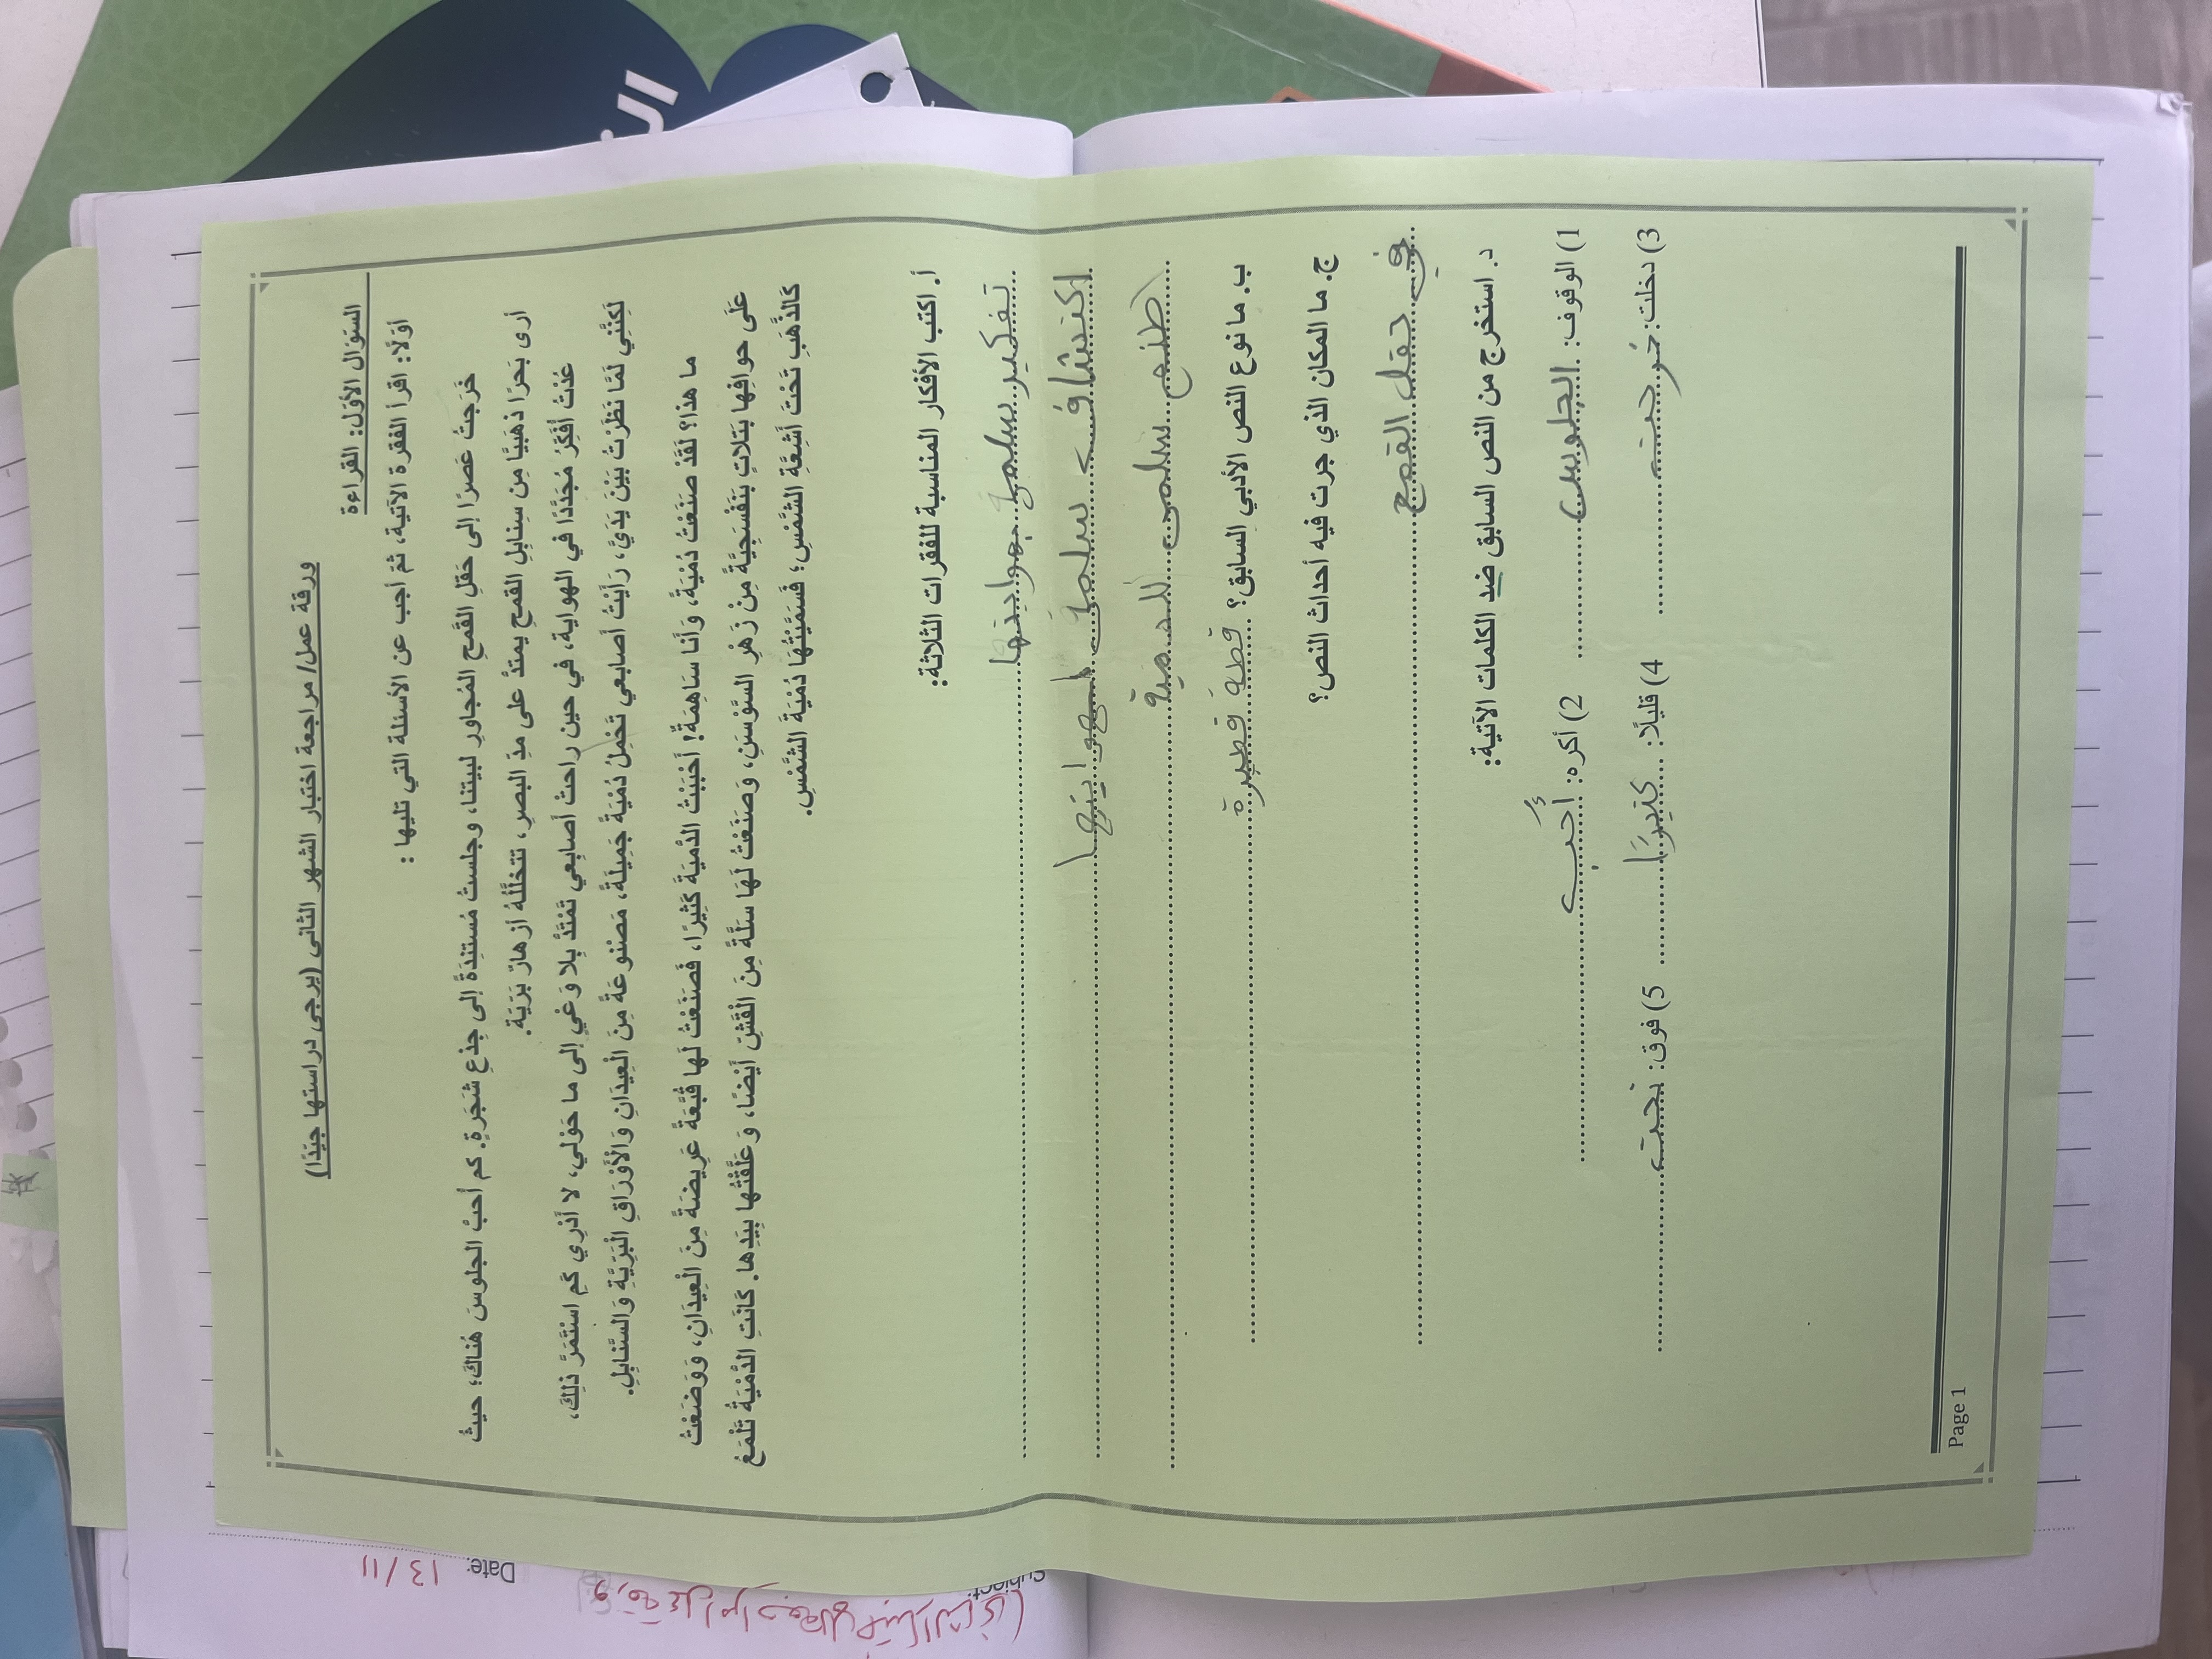 ورقة عمل/ مراجعة اختبار الشهر الثاني (يرجى دراستها جيّدًا)
السؤال الأوّل: القراءة
أوّلًا: اقرأ الفقرة الآتية، ثمّ أجب عن الأسئلة التي تليها :
خَرَجتُ عَصرًا إلى حَقلِ القَمحِ المُجاورِ لبيتنا، وجلستُ مُستَنِدَةً إلى جِذعِ شَجَرَةٍ. كم أحبُّ الجلوسَ هُناكَ؛ حيثُ
أرى بَحرًا ذهَبيًّا مِن سِنابلِ القمحِ يمتدُّ على مدِّ البصرِ، تتخلَّلُهُ أزهارٌ بَرِّيَة.
عُدْتُ أُفَكِّرُ مُجَدَّدًا في الهِوايةِ، في حين راحتْ أصابِعي تَمْتَدُّ بِلا وَعْيٍ إلى ما حَوْلي، لا أَدْري كَمِ اسْتَمَرَّ ذلِكَ،
لكِنَّني لَمّا نَظَرْتُ بَيْنَ يَدَيَّ، رَأَيْتُ أَصابعي تَحْمِلُ دُمْيَةً جَميلَةً، مَصْنوعَةً مِنَ الْعِيدَانِ وَالْأَوْرَاقِ الْبَرِّيَّةِ وَالسَّنابِلِ.
ما هذا؟ لَقَدْ صَنَعْتُ دُمْيَةً، وَأَنا سَاهِمَةٌ! أَحْبَبْتُ الدُّمْيَةَ كَثيرًا، فَصَنَعْتُ لَها قُبَّعَةً عَريضَةً مِنَ الْعِيدَانِ، وَوَضَعْتُ
عَلَى حوافِها بَتَلاتٍ بَنَفْسَجِيَّةً مِنْ زَهْرِ السَّوْسَنِ، وَصَنَعْتُ لَهَا سَلَّةً مِنَ الْقَشِّ أَيْضًا، وَعَلَّقْتُها بِيَدِها. كَانَتِ الدُّمْيَةُ تَلْمَعُ
كَالذَّهَبِ تَحْتَ أَشِعَّةِ الشَّمْسِ؛ فَسَمَّيْتُهَا دُمْيَةَ الشَّمْسِ.
أ. اكتب الأفكار المناسبة للفقرات الثلاثة:
تفكير سلمى بهوايتها
اكتشاف سلمى لهوايتها
صنع سلمى للدمية
ب. ما نوع النص الأدبي السابق؟ قصة قصيرة
ج. ما المكان الذي جرت فيه أحداث النص؟
في حقل القمح
د. استخرج من النص السابق ضد الكلمات الآتية:
1) الوقوف: الجلوس 2) أكره: أُحبُّ
3) دخلت: خرجت 4) قليلًا: كثيرًا 5) فوق: تحت
Page 1
Date: 13/11
Subject: